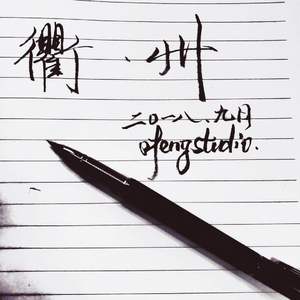 衢·州
二〇一八、九月
@fengstudio.